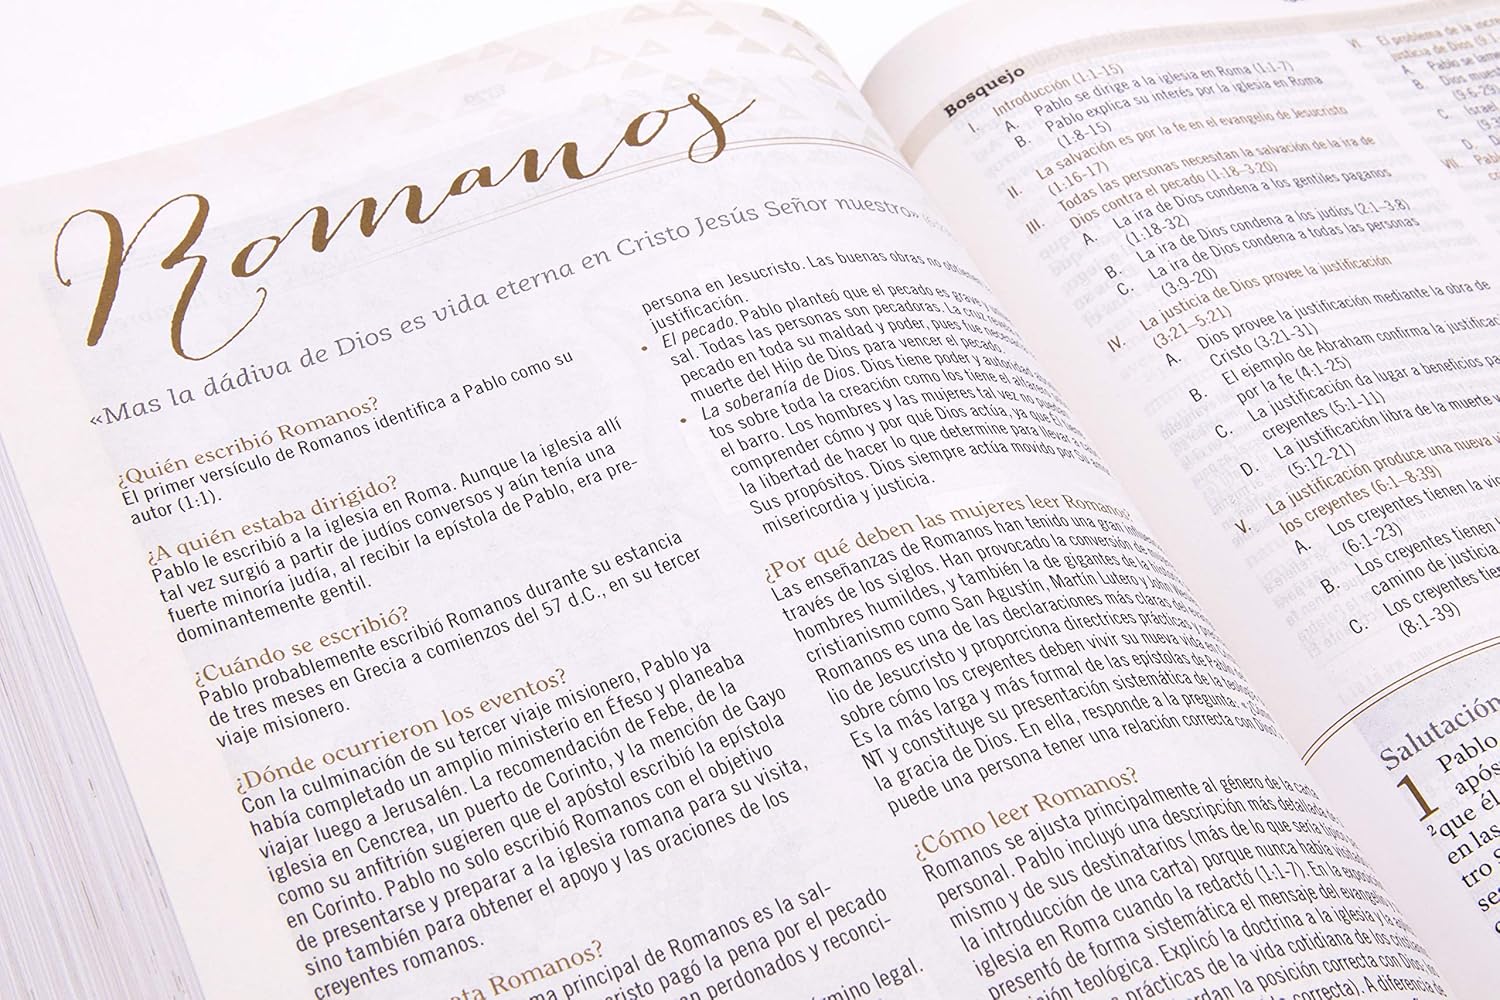 Romanos
«Mas la dádiva de Dios es vida eterna en Cristo Jesús Señor nuestro»
¿Quién escribió Romanos?
El primer versículo de Romanos identifica a Pablo como su
autor (1:1).
¿A quién estaba dirigido?
Pablo le escribió a la iglesia en Roma. Aunque la iglesia allí
tal vez surgió a partir de judíos conversos y aún tenía una
fuerte minoría judía, al recibir la epístola de Pablo, era pre-
dominantemente gentil.
¿Cuándo se escribió?
Pablo probablemente escribió Romanos durante su estancia
de tres meses en Grecia a comienzos del 57 d.C., en su tercer
viaje misionero.
¿Dónde ocurrieron los eventos?
Con la culminación de su tercer viaje misionero, Pablo ya
había completado un amplio ministerio en Éfeso y planeaba
viajar luego a Jerusalén. La recomendación de Febe, de la
iglesia en Cencrea, un puerto de Corinto, y la mención de Gayo
como su anfitrión sugieren que el apóstol escribió la epístola
en Corinto. Pablo no solo escribió Romanos con el objetivo
de presentarse y preparar a la iglesia romana para su visita,
sino también para obtener el apoyo y las oraciones de los
creyentes romanos.
Romanos?
principal de Romanos es la sal-
pagó la pena por el pecado
perdonados y reconci-
término legal.
persona en Jesucristo. Las buenas obras no
justificación.
• El pecado. Pablo planteó que el pecado es grave y
sal. Todas las personas son pecadoras. La cruz
pecado en toda su maldad y poder, pues fue
muerte del Hijo de Dios para vencer el pecado.
• La soberanía de Dios. Dios tiene poder y autoridad
tos sobre toda la creación como los tiene el
el barro. Los hombres y las mujeres tal vez no
comprender cómo y por qué Dios actúa, ya que Él tiene
la libertad de hacer lo que determine para llevar a
Sus propósitos. Dios siempre actúa movido por Su
misericordia y justicia.
¿Por qué deben las mujeres leer Romanos?
Las enseñanzas de Romanos han tenido una gran
través de los siglos. Han provocado la conversión de
hombres humildes, y también la de gigantes de la
cristianismo como San Agustín, Martín Lutero y John
Romanos es una de las declaraciones más claras del
lio de Jesucristo y proporciona directrices prácticas
sobre cómo los creyentes deben vivir su nueva vida en
Es la más larga y más formal de las epístolas de Pablo
NT y constituye su presentación sistemática de la
la gracia de Dios. En ella, responde a la pregunta:
puede una persona tener una relación correcta con Dios?
¿Cómo leer Romanos?
Romanos se ajusta principalmente al género de la carta
personal. Pablo incluyó una descripción más detallada de
mismo y de sus destinatarios (más de lo que sería
la introducción de una carta) porque nunca había
iglesia en Roma cuando la redactó (1:1-7). En la
presentó de forma sistemática el mensaje del
teológica. Explicó la doctrina a la iglesia y
prácticas de la vida cotidiana de los
la posición correcta con Dios
A diferencia de
Bosquejo
I. Introducción (1:1-15)
A. Pablo se dirige a la iglesia en Roma (1:1-7)
B. Pablo explica su interés por la iglesia en Roma
(1:8-15)
II. La salvación es por la fe en el evangelio de Jesucristo
(1:16-17)
III. Todas las personas necesitan la salvación de la ira de
Dios contra el pecado (1:18–3:20)
A. La ira de Dios condena a los gentiles paganos
(1:18-32)
B. La ira de Dios condena a los judíos (2:1–3:8)
C. La ira de Dios condena a todas las personas
(3:9-20)
IV. La justicia de Dios provee la justificación
(3:21–5:21)
A. Dios provee la justificación mediante la obra de
Cristo (3:21-31)
B. El ejemplo de Abraham confirma la
por la fe (4:1-25)
C. La justificación da lugar a beneficios
creyentes (5:1-11)
D. La justificación libra de la muerte y
(5:12-21)
V. La justificación produce una nueva
los creyentes (6:1–8:39)
A. Los creyentes tienen la
(6:1-23)
B. Los creyentes tienen
camino de justicia
C. Los creyentes
(8:1-39)
VI. El problema de la
justicia de Dios
A. Pablo se
B. Dios
C. Israel
D.
VII.
Salutación
1 Pablo
2 que él
en las
tro